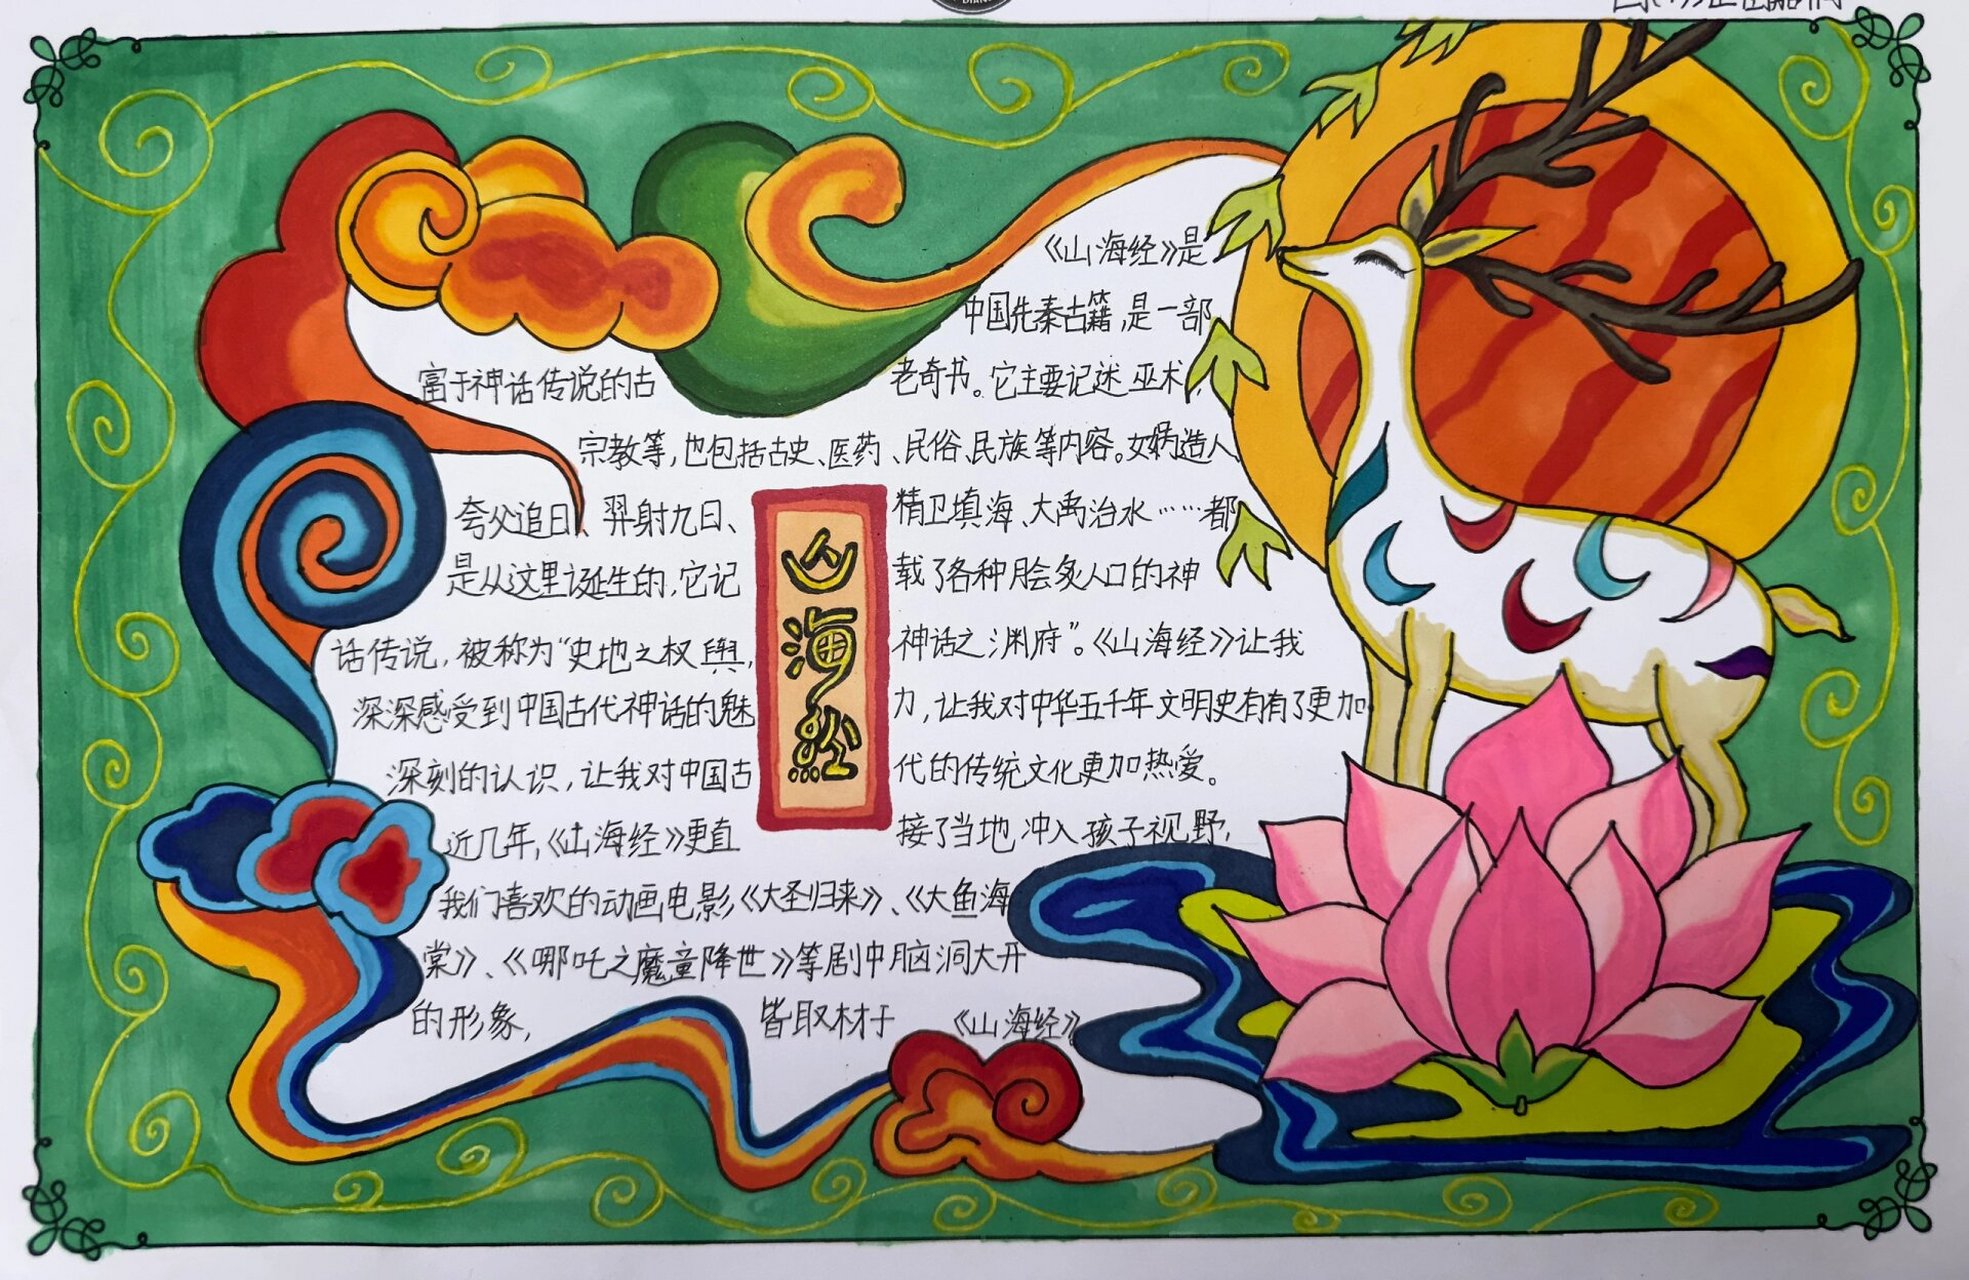 《山海经》是
中国先秦古籍,是一部
富于神话传说的古 老奇书。它主要记述巫术、
宗教等,也包括古史、医药、民俗、民族等内容。女娲造人、
夸父追日、羿射九日、 精卫填海、大禹治水……都
是从这里诞生的,它记 载了各种脍炙人口的神
话传说,被称为“史地之权舆, 神话之渊府”。《山海经》让我
深深感受到中国古代神话的魅 力,让我对中华五千年文明史有有了更加
深刻的认识,让我对中国古 代的传统文化更加热爱。
近几年,《山海经》更直 接了当地冲入孩子视野,
我们喜欢的动画电影《大圣归来》、《大鱼海
棠》、《哪吒之魔童降世》等剧中脑洞大开
的形象, 皆取材于 《山海经》
山海经